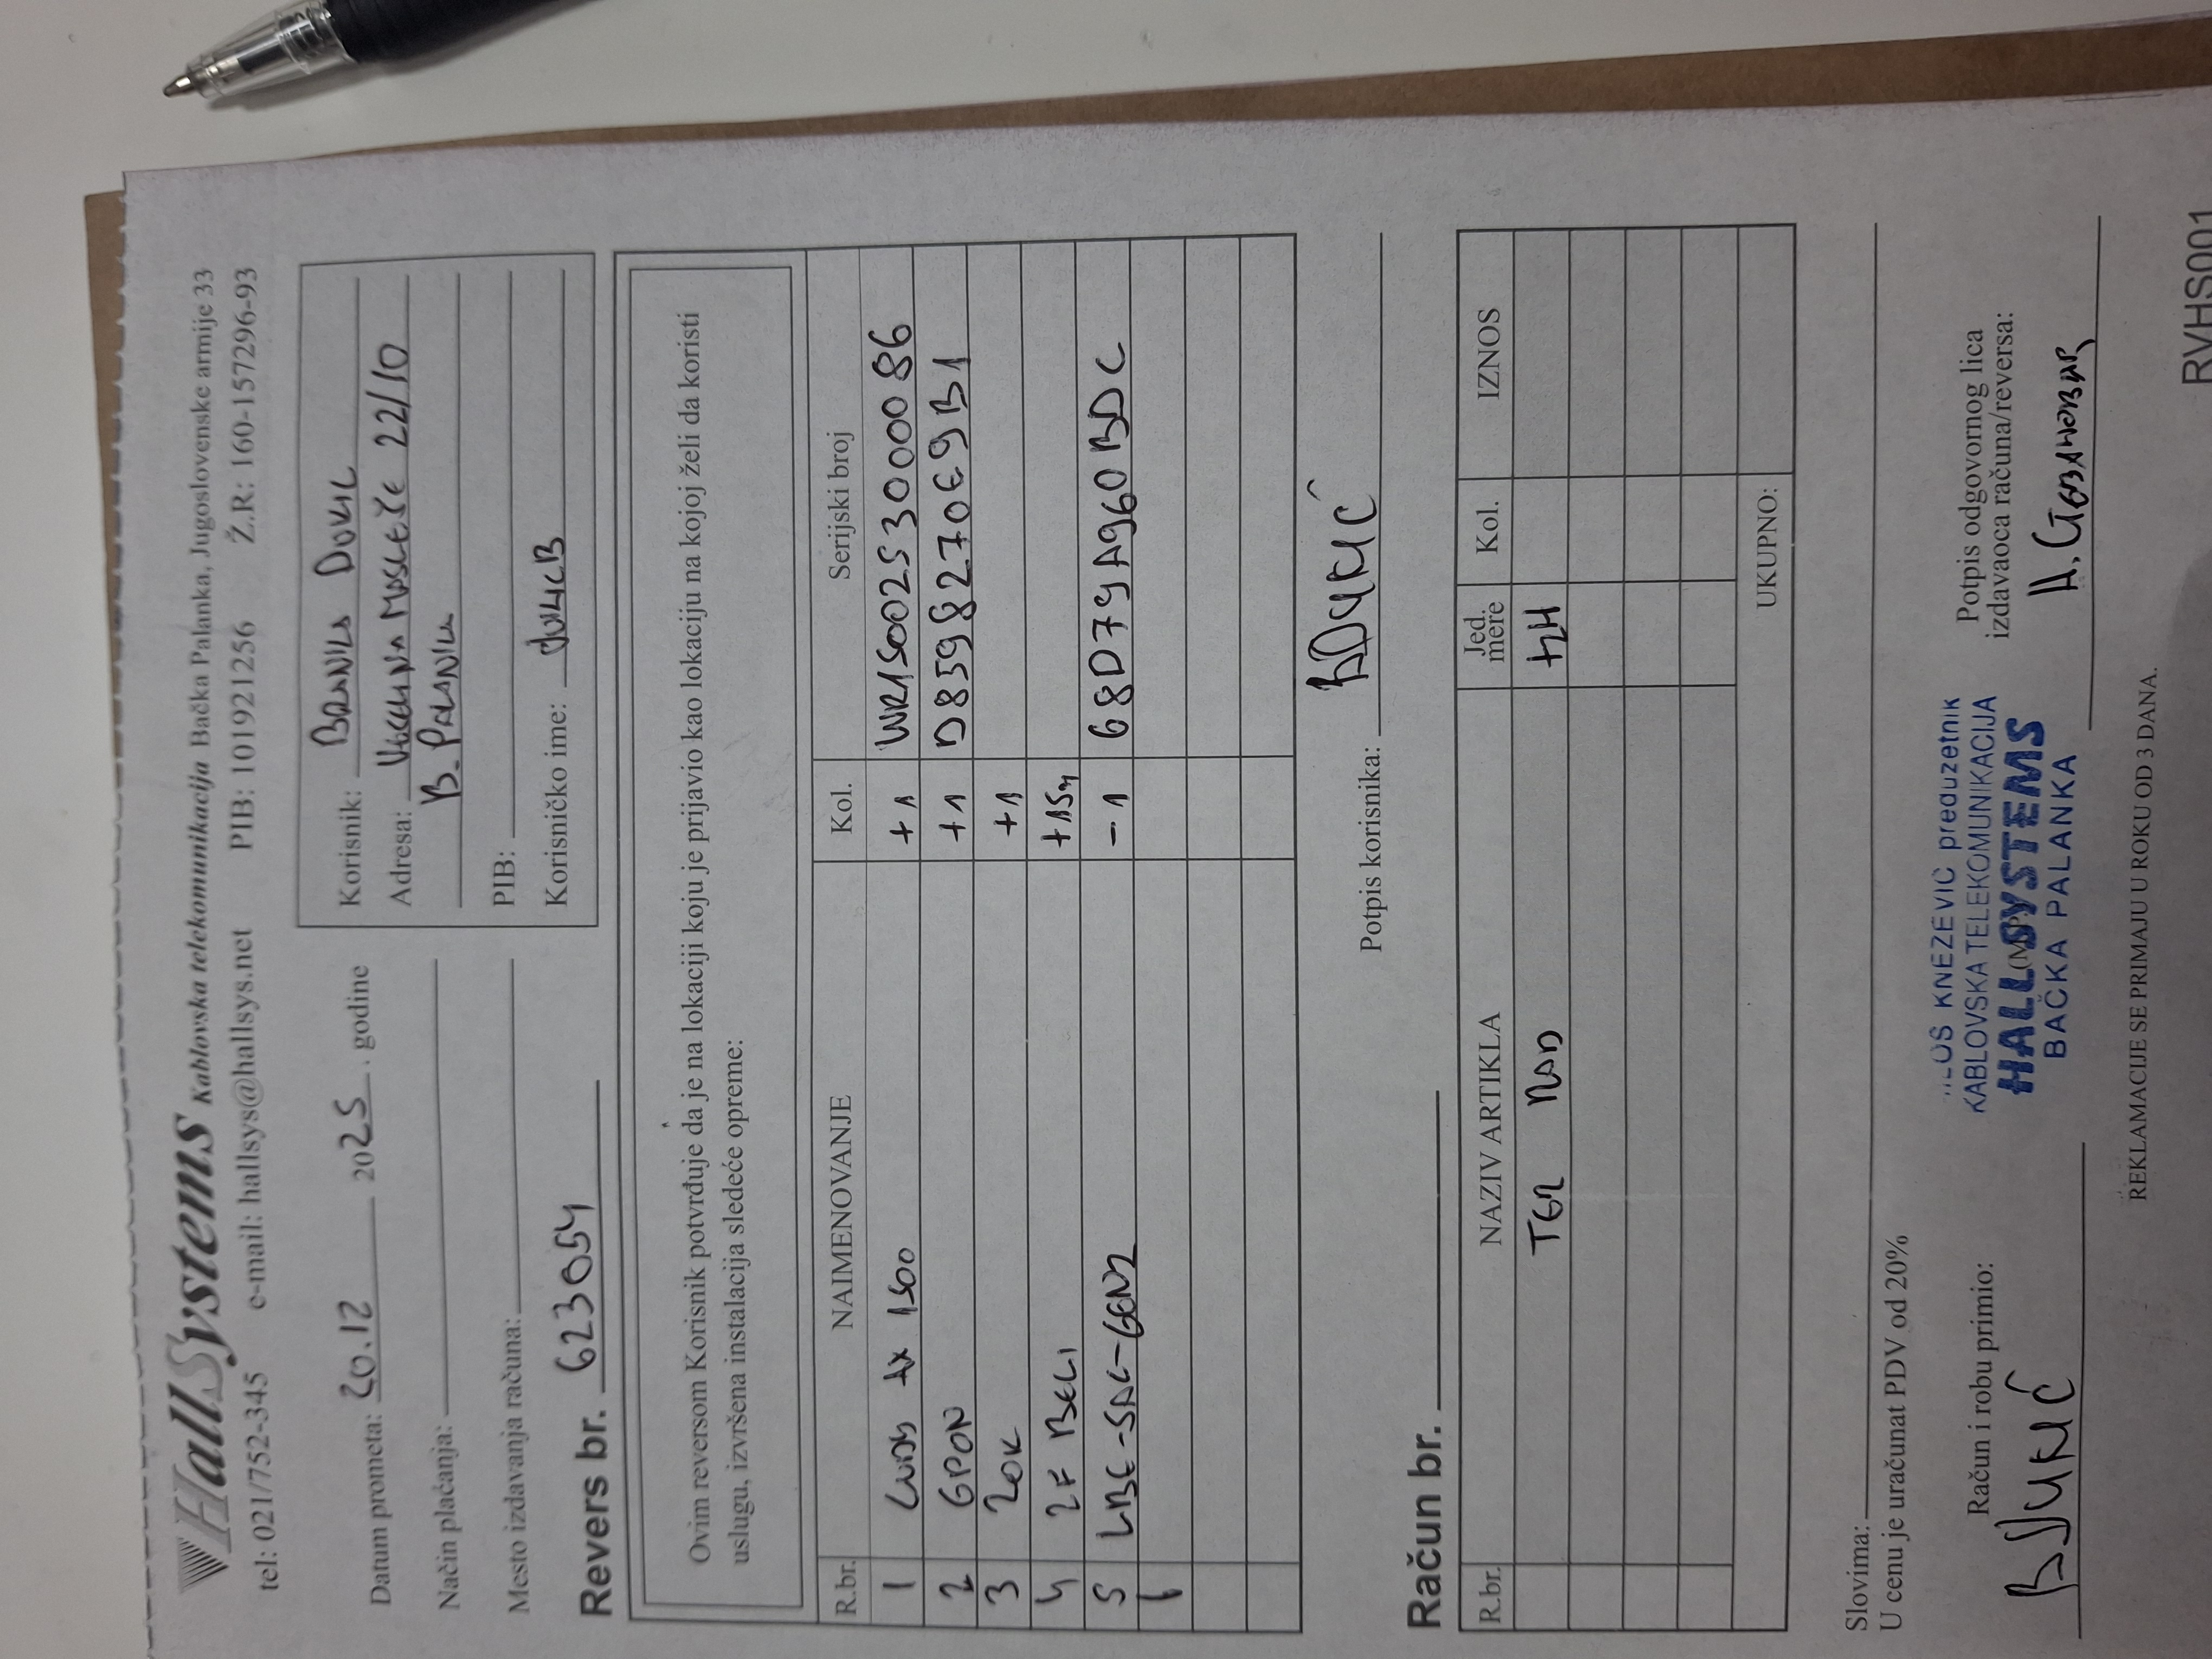 HallSystems Kablovska telekomunikacija Bačka Palanka, Jugoslovenske armije 33
tel: 021/752-345 e-mail: hallsys@hallsys.net PIB: 101921256 Ž.R: 160-157296-93
Datum prometa: 20.12 2025. godine
Način plaćanja:
Mesto izdavanja računa:
Revers br. 623054
Korisnik: BRANKA DUKIC
Adresa: MASLEŠE 22/10
B. PALANKA
PIB:
Korisničko ime:
Ovim reversom Korisnik potvrđuje da je na lokaciji koju je prijavio kao lokaciju na kojoj želi da koristi
uslugu, izvršena instalacija sledeće opreme:
R.br. NAIMENOVANJE Kol. Serijski broj
1 CUDY AX 1500 +1 WR1500253000086
2 GPON +1 D8598270E9B1
3 ZOK +1
4 2F BELI +15m
5 LBE-5AC-GEN2 -1 68D79A960BDC
6
Potpis korisnika: BДУКИЋ
Račun br.
R.br. NAZIV ARTIKLA Jed. mere Kol. IZNOS
UKUPNO:
Slovima:
U cenu je uračunat PDV od 20%
Račun i robu primio:
BДУКИЋ
KNEZEVIĆ preduzetnik
KABLOVSKA TELEKOMUNIKACIJA
HALLSYSTEMS
BAČKA PALANKA
Potpis odgovornog lica
izdavaoca računa/reversa:
REKLAMACIJE SE PRIMAJU U ROKU OD 3 DANA.
RVHS001